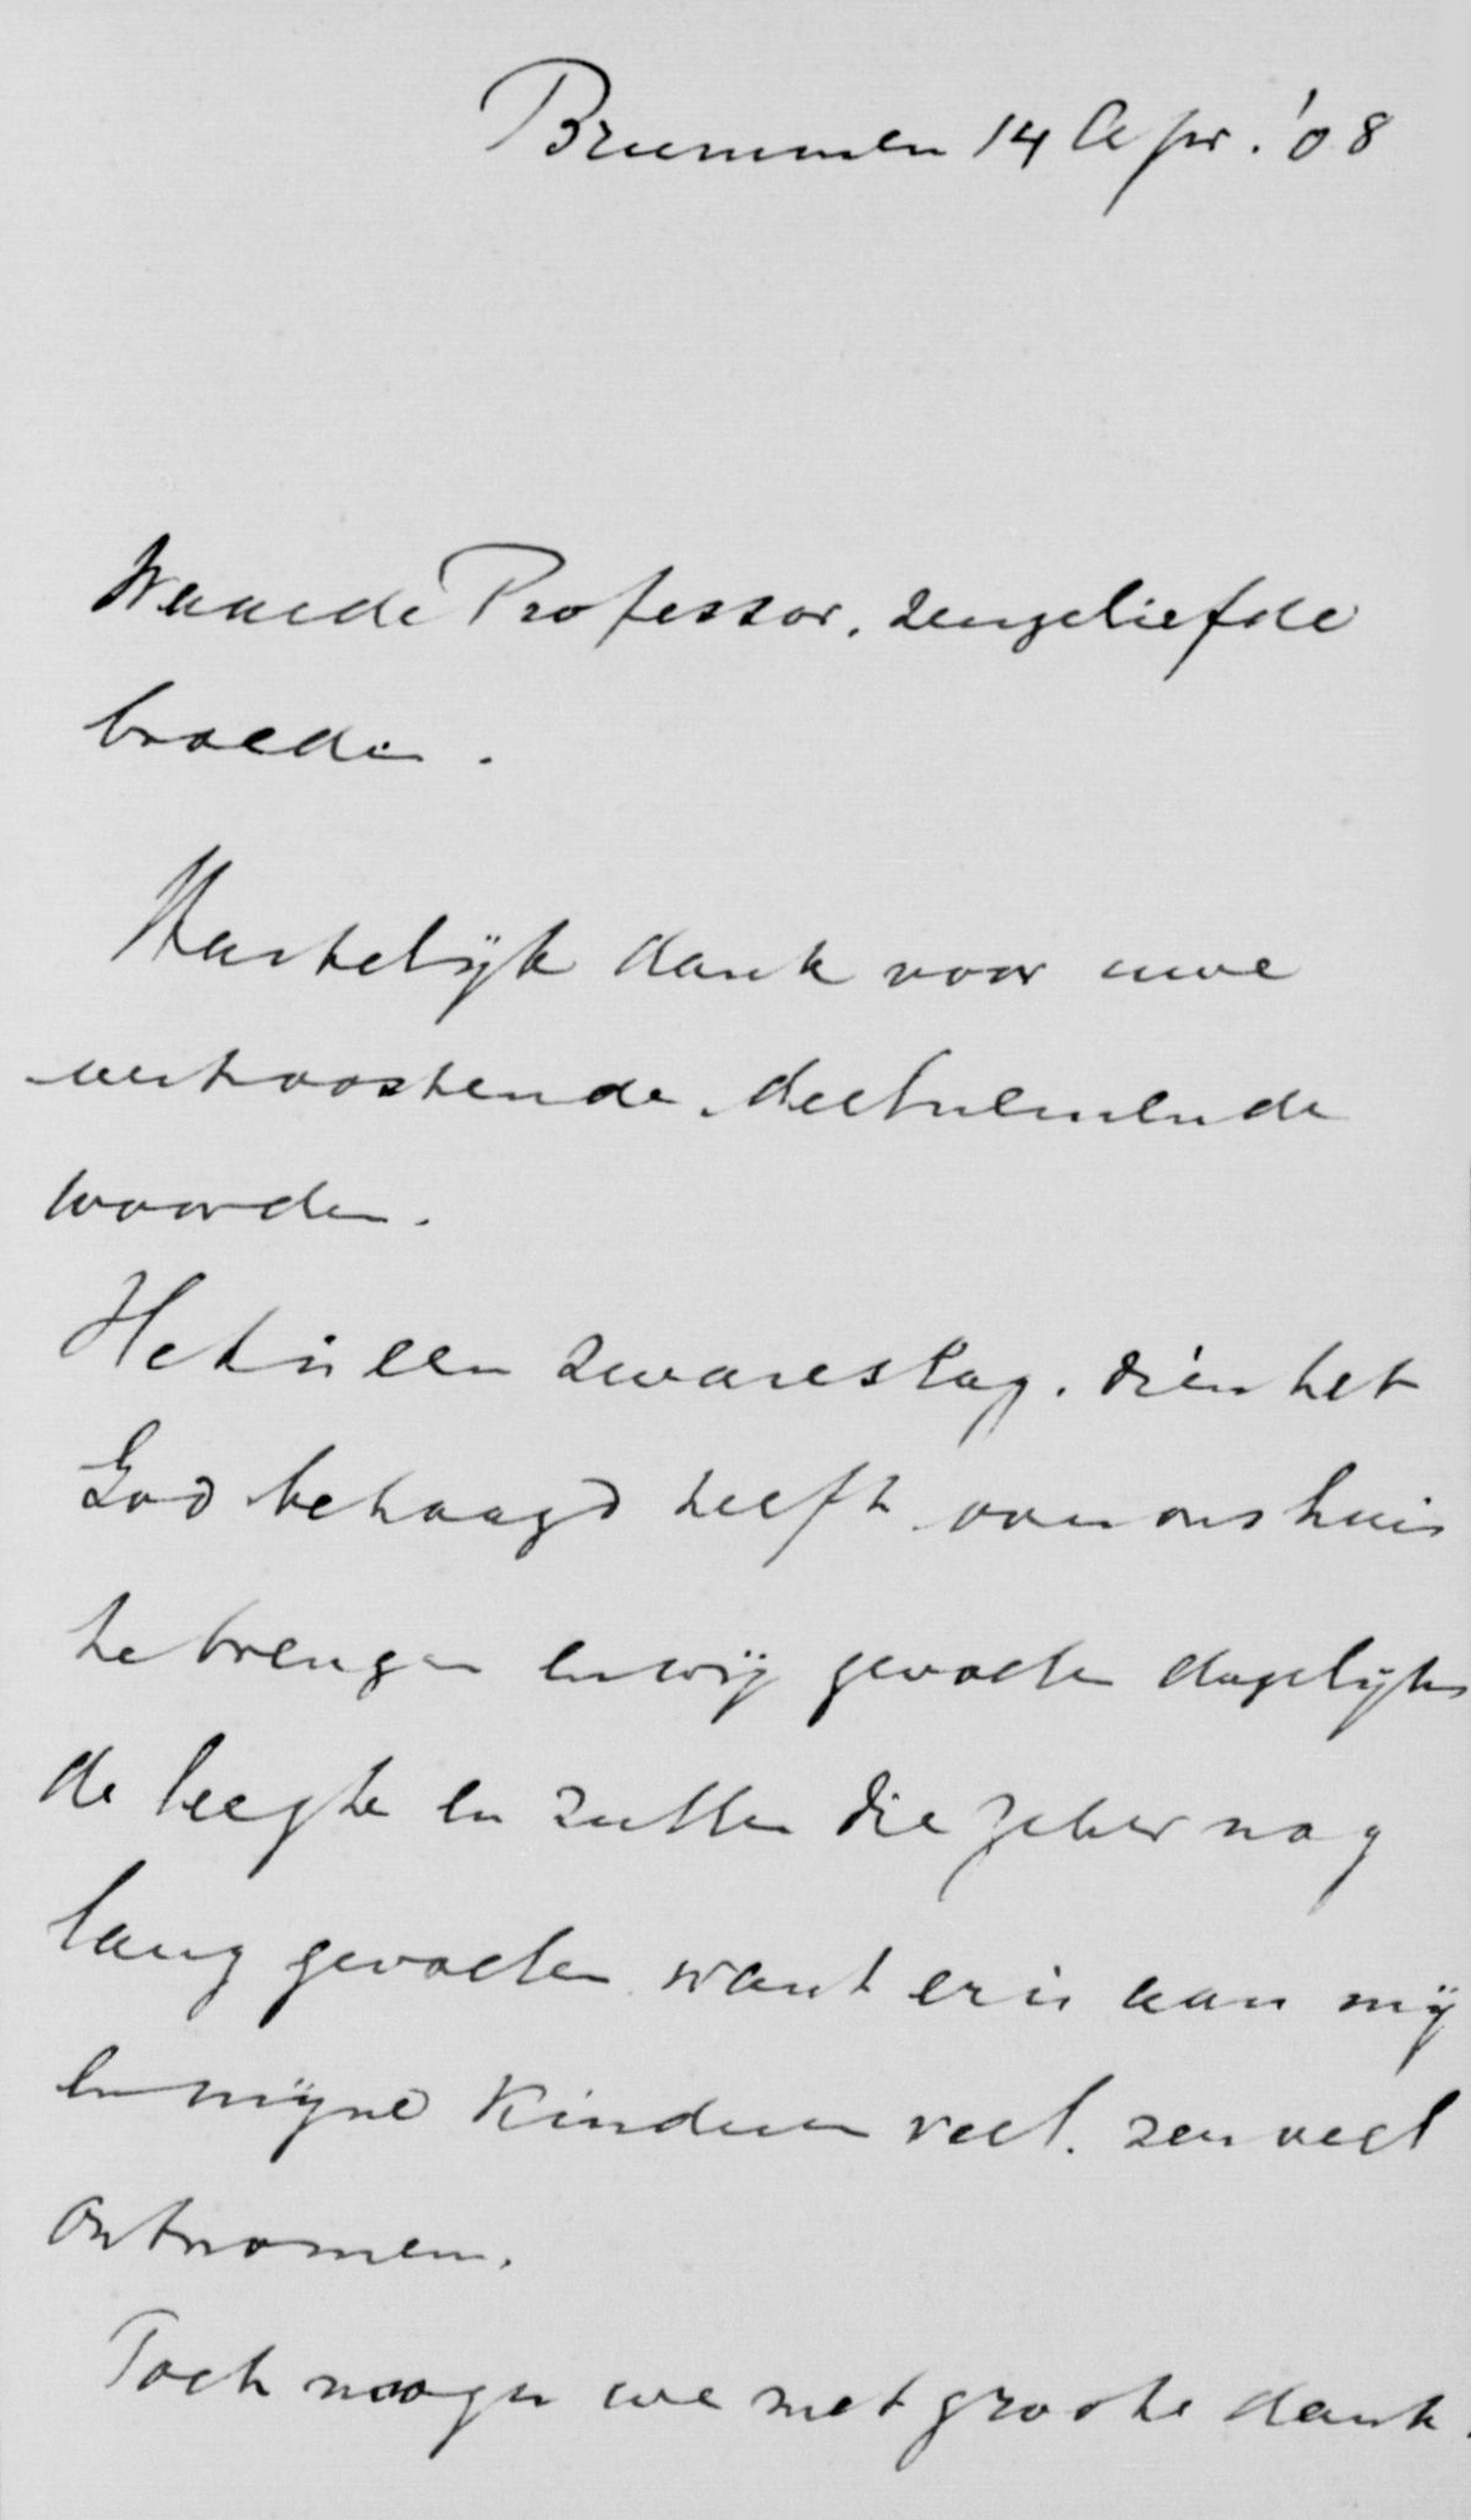 Brummen 14 Apr. '08
Waarde Professor, zeergeliefde
broeder.
Hartelijk dank voor uwe
vertroostende, deelnemende
woorden.
Het is een zware slag, dien het
God behaagd heeft over ons huis
te brengen en wij gevoelen dagelijks
de leegte en zullen die zeker nog
lang gevoelen want er is aan mij
en mijne kinderen veel, zeer veel
ontnomen.
Toch mogen we met groote dank-